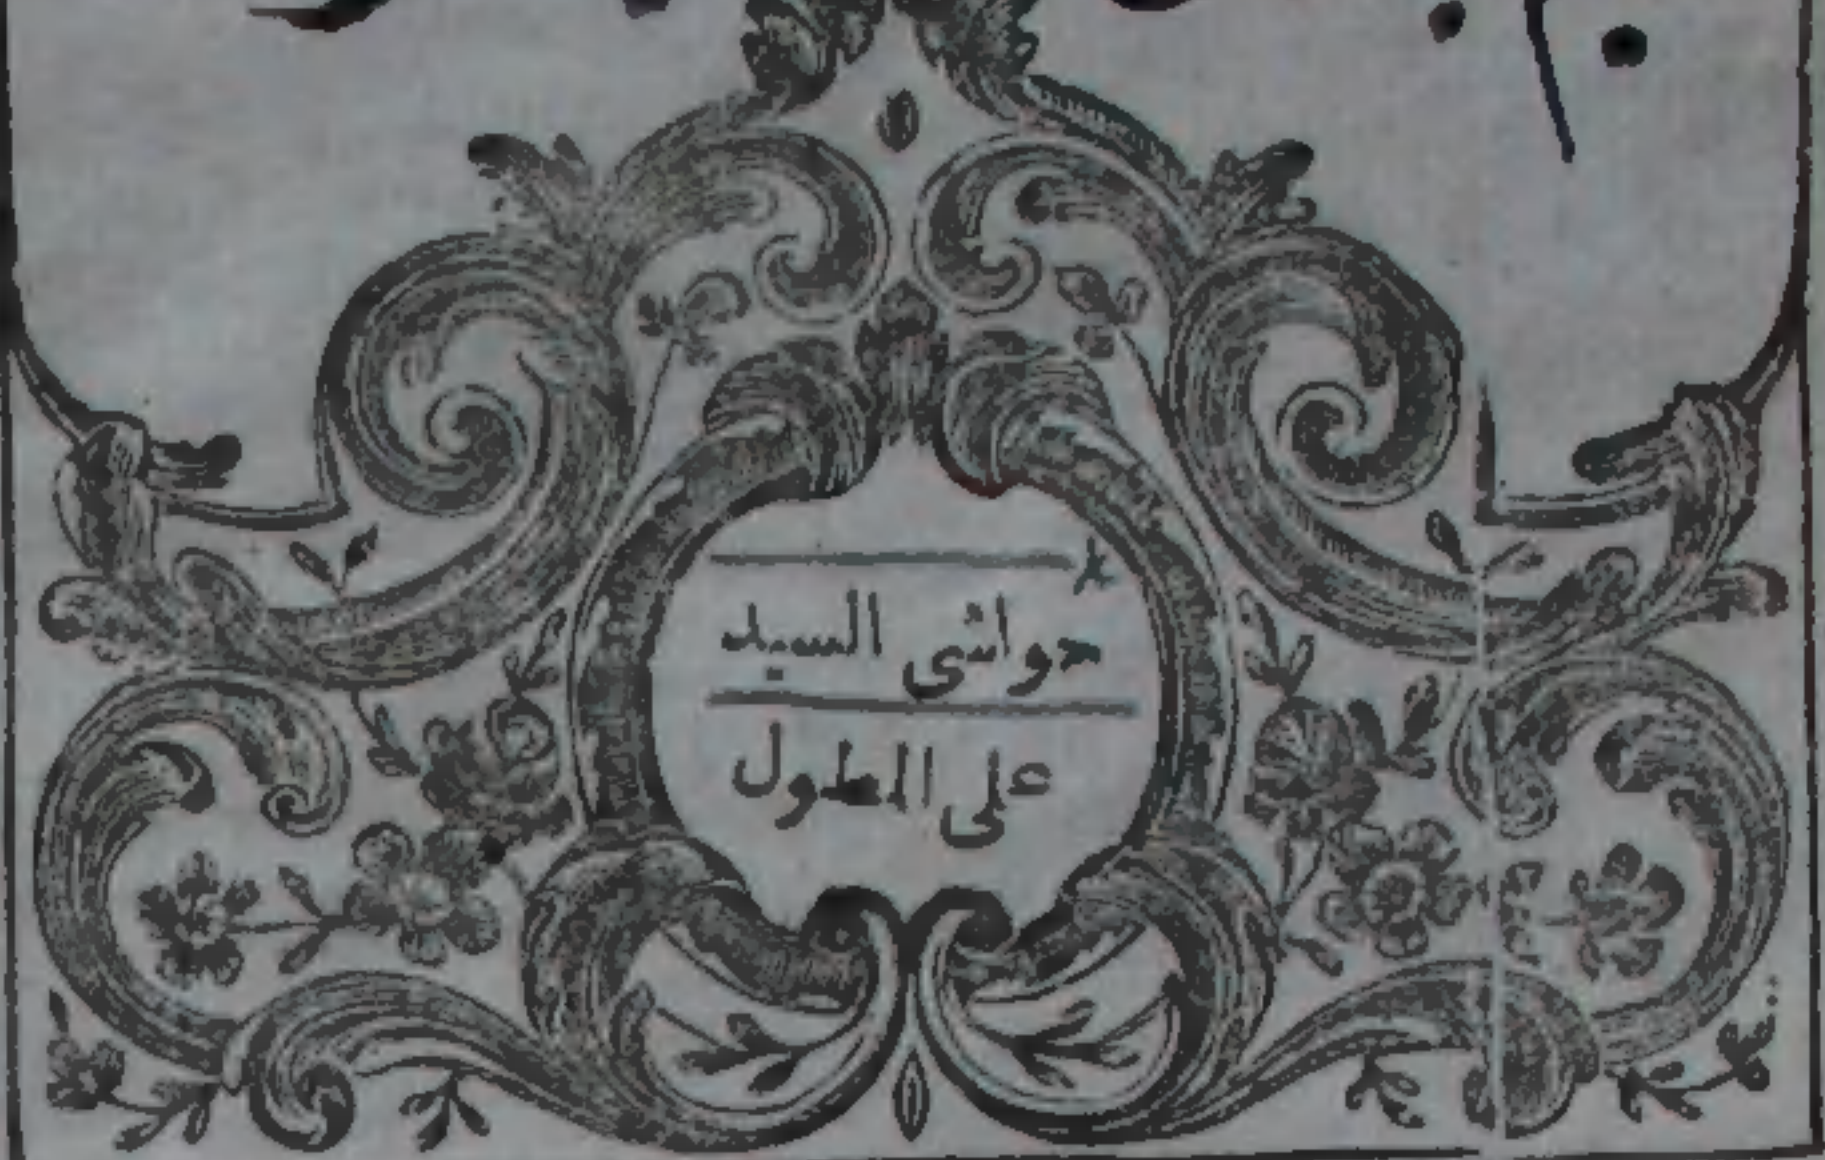 حواشى السيد
على المطول